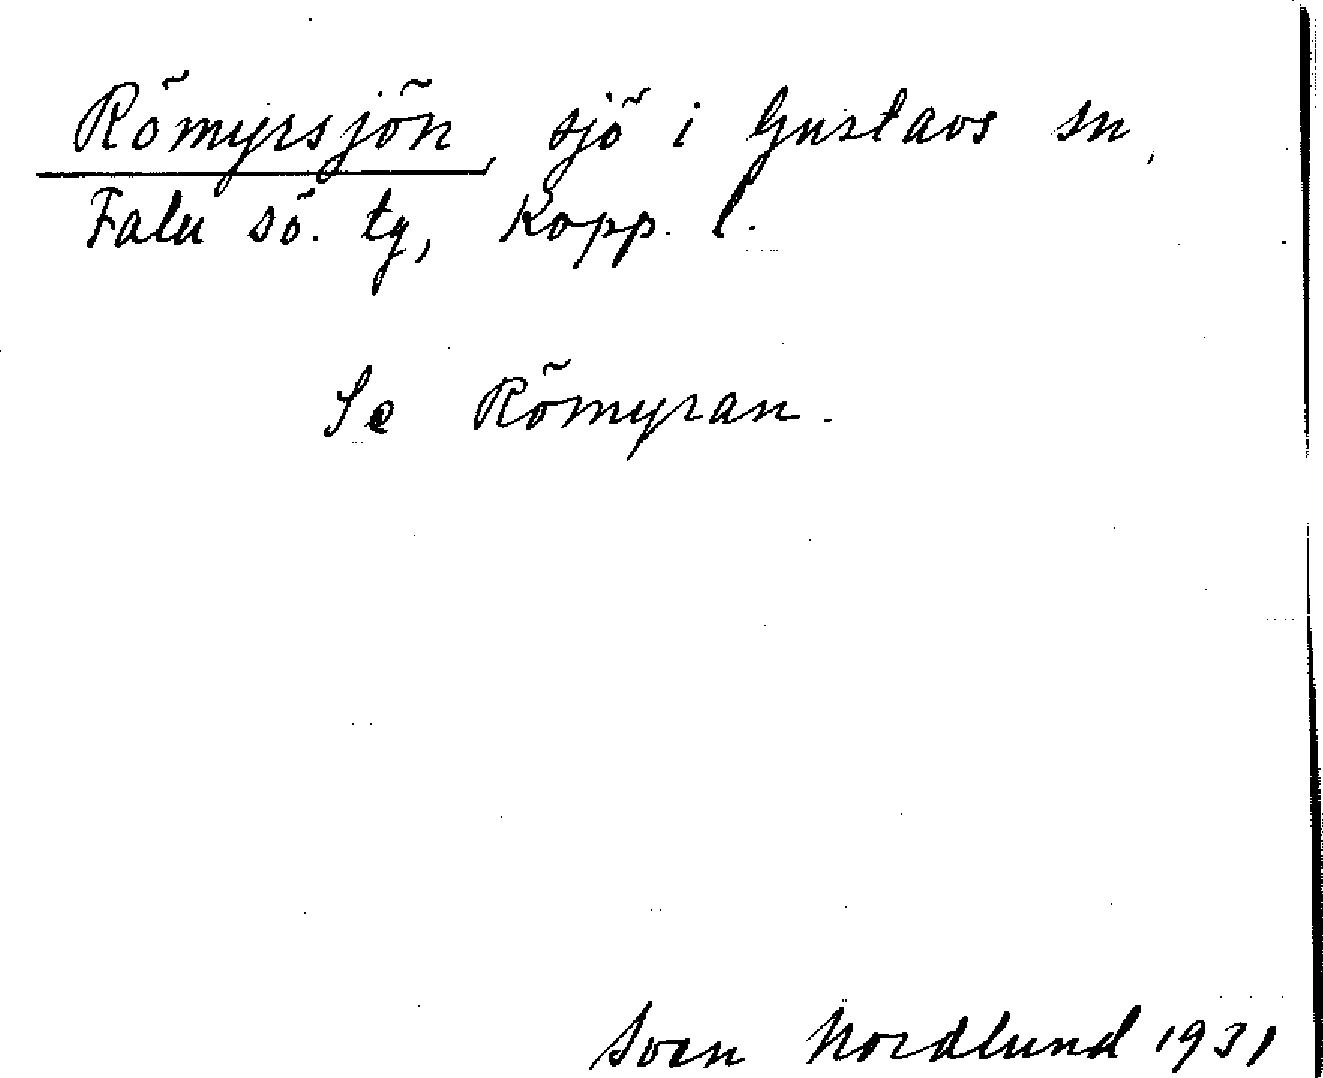 Römyrsjön, sjö i Gustavs sn,
Falu sö. tg, Kopp. l.
Se Römyran.
Sven Nordlund 1931